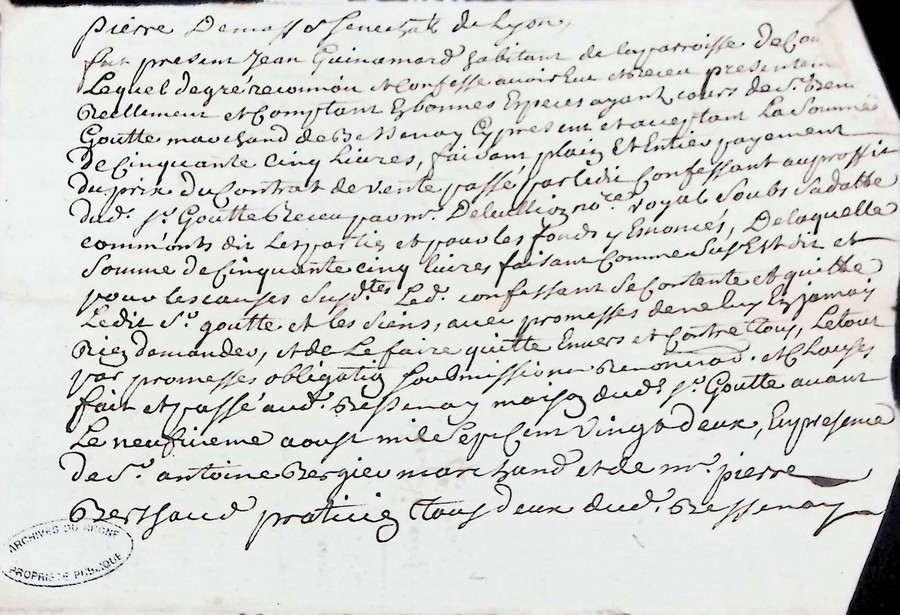 pierre Demasso Senechal de Lyon,
fut present Jean Guinamard habitant de la parroisse de
Lequel de gré reconnou et confesse avoir eu et receu presentem
Reellement et Comptant Ez bonnes Especes ayant cours de Sr.
Goutte marchand de Bessenay Cy present et aceptant La Somme
de Cinquante Cinq Livres, faisant plain Et Entier payement
du prix du Contrat de vente passé par ledit Confessant au proffit
dudt. Sr. Goutte Receu par mr. Deleullion nore. royal Soubs Sa datte
comm'onts dit Les partie et pour les fonds y Enoncés, De laquelle
Somme de Cinquante Cinq livres faisant Comme Sus Est dit et
pour les causes Susdtes Led. confessant Se Contente et quitte
Ledit Sr. goutte et les Siens, avec promesses de ne luy En jamais
Rien demander, et de Le faire quitte Envers et Contre tous, Le tout
par promesses obligation Soubmissions Renonciaon. et Clauses
fait et passé audt. Bessenay maison dudt. Sr. Goutte avant
Le neufvieme aoust mile Sept Cent Vingt deux, En presence
de Sr. antoine Bergier marchand et de mr. pierre
Berthaud praticien tous deux dudt. Bessenay
ARCHIVES DU RHONE
PROPRIÉTÉ PUBLIQUE